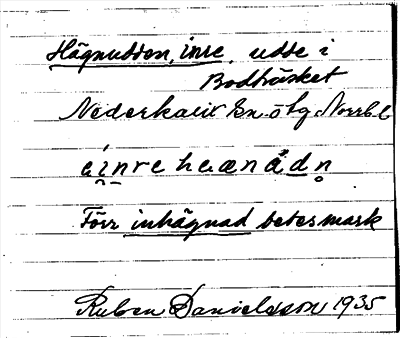 Hägnudden, inre, udde i
Bodträsket
Nederkalix sn ö bg Norrb.l
Förr inhägnad betesmark
Ruben Danielsson 1935